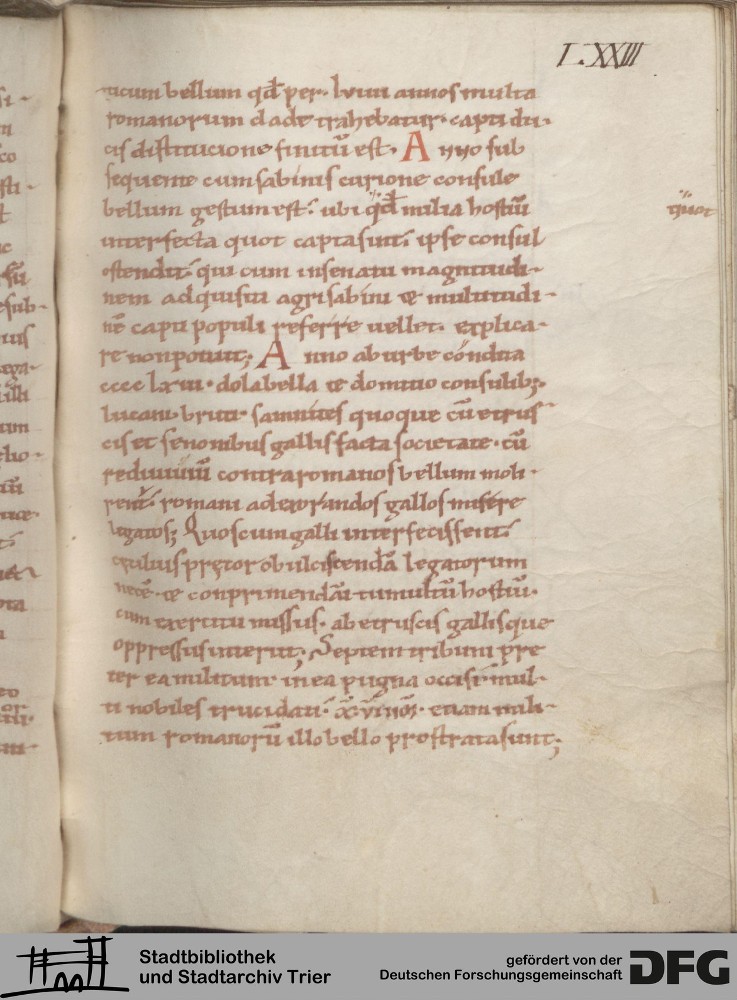 L.XXIII
ticum bellum qđ per· lviiii annos multa
romanorum clade trahebatur· capti du·
cis distitucione finitū est· Anno sub
sequente cum sabinis curione consule
bellum gestum est: ubi qđ milia hostiū
quot
interfecta quot capta sint: ipse consul
ostendit: qui cum in senatu magnitudi-
nem adquisiti agri sabini te multitudi-
nē capti populi referre uellet· explica-
re non potuit; Anno ab urbe condita
cccc lxiii· dolabella te domitio consulib;·
lucani· brutii· samnites quoque cū etrus
cis et senonibus gallis facta societate· cū
rediuiuū contra romanos bellum moli-
rent· romani ad exorandos gallos misere
legatos; Quos cum galli interfecissent:
cęcilius pretor ob ulciscendā legatorum
necē· te conprimendū tumultū hostiū·
cum exercitu missus· ab etruscis gallisque
oppressus interiit; Septem tribuni pre
ter ea militum· in ea pugna occisi· mul-
ti nobiles trucidati· etiam mili-
tum romanorū illo bello prostrata sunt;
Stadtbibliothek
und Stadtarchiv Trier
gefördert von der
Deutschen Forschungsgemeinschaft
DFG